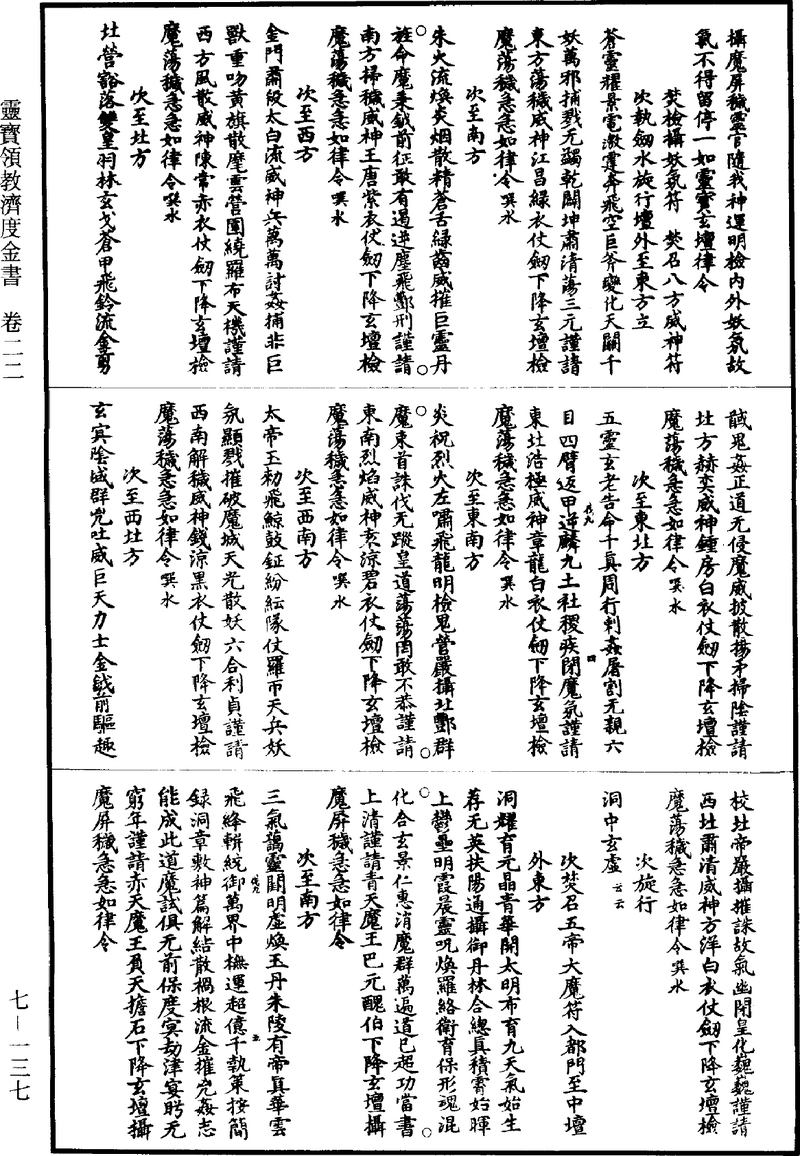 靈寶領教濟度金書　卷二二
七－一三七
攝魔屏穢靈官隨我神運明檢內外妖氛故
氣不得留停一如靈寶玄壇律令
焚檢攝妖氛符　焚召八方威神符
次執劒水旋行壇外至東方立
蒼靈耀景電激霆奔飛空巨斧變化天關千
妖萬邪捕戮无蠲乾關坤肅清蕩三元謹請
東方蕩穢威神江昌綠衣仗劒下降玄壇檢
魔蕩穢急急如律令噀水
次至南方
朱火流煥炎烟散精蒼舌綠齒威摧巨靈丹
旌命魔秉鉞前征敢有遏逆塵飛酆刑謹請
南方掃穢威神王唐紫衣仗劒下降玄壇檢
魔蕩穢急急如律令噀水
次至西方
金門肅殺太白流威神兵萬萬討姦捕非巨
獸重吻黃旗散麾雲營圍繞羅布天機謹請
西方風散威神陳常赤衣仗劒下降玄壇檢
魔蕩穢急急如律令噀水
次至北方
北營谿落雙皇羽林玄戈蒼甲飛鈴流金剪
馘鬼姦正道无侵魔威披散揚矛掃陰謹請
北方赫奕威神鍾房白衣仗劒下降玄壇檢
魔蕩穢急急如律令噀水
次至東北方
五靈玄老告命千真周行剿姦屠割无親六
目四臂返甲逆麟九土社稷疾閉魔氛謹請
東北浩極威神章龍白衣仗劒下降玄壇檢
魔蕩穢急急如律令噀水
次至東南方
炎祝烈火左嘯飛龍明檢鬼營嚴攝北酆群
魔束首誅伐无蹤皇道蕩蕩罔敢不恭謹請
東南烈焰威神素涼碧衣仗劒下降玄壇檢
魔蕩穢急急如律令噀水
次至西南方
太帝玉勑飛鯨鼓鉦紛紜隊仗羅帀天兵妖
氛顯戮摧破魔城天光散妖六合利貞謹請
西南解穢威神錢涼黑衣仗劒下降玄壇檢
魔蕩穢急急如律令噀水
次至西北方
玄賓陰威群兇吐威巨天力士金鉞前驅趣
校北帝嚴攝摧誅故氣幽閉皇化魏巍謹請
西北肅清威神方洋白衣仗劒下降玄壇檢
魔蕩穢急急如律令噀水
次旋行
洞中玄虛云云
次焚召五帝大魔符入都門至中壇
外東方
洞耀育元晶青華開太明布育九天氣始生
荐无英扶陽通攝御丹林合總真積霄始暉
上鬱壘明霞晨靈咒煥羅絡衛育保形魂混
化合玄景仁惠消魔群萬遍道已超功當書
上清謹請青天魔王巴元醜伯下降玄壇攝
魔屏穢急急如律令
次至南方
三氣藹靈闓明虛煥玉丹朱陵有帝真華雲
飛絳輧統御萬界中撫運超億千執策按簡
録洞章敷神篇解結散禍根流金摧兇姦志
能成此道魔試俱无前保度冥劫津宴眄无
窮年謹請赤天魔王負天擔石下降玄壇攝
魔屏穢急急如律令